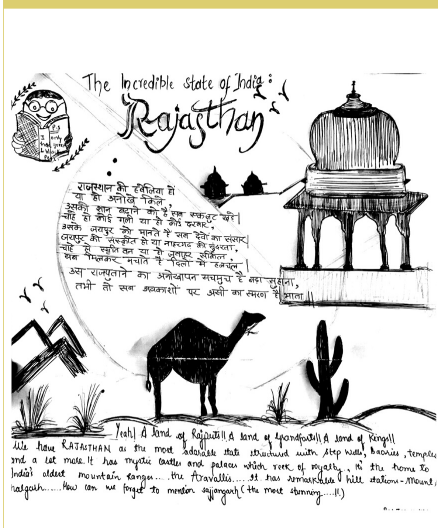 The Incredible state of India:
Rajasthan
राजस्थान की हवेलिया हो
या हो अनोखे किले,
उसकी शान बढ़ाने को है सब एकजुट खड़े।
चाहे हो कोई गली या हो कोई दरबार,
उसके जयपुर को मानते है सब देवो का संसार।
जयपुर की संस्कृति हो या नाहरगढ की सुंदरता,
चाहे हो
सब मिलकर मचाते है दिलो में हलचल।
उस राजपुताने का अनोखापन सचमुच है बड़ा सुहाना,
तभी तो सब अवकाशों पर उसी का स्मरण है आता॥
Yeah! A land of Rajputs!! A land of Grandforts!! A land of Kings!!
We have RAJASTHAN as the most adorable state structured with step wells, Baories, temples
and a lot more. It has mystic castles and palaces which reek of royalty. It's the home to
India's oldest mountain ranges... the Aravallis..... It has remarkable hill station-Mount,
How can we forget to mention sajjangarh (the most stunning.....!!)